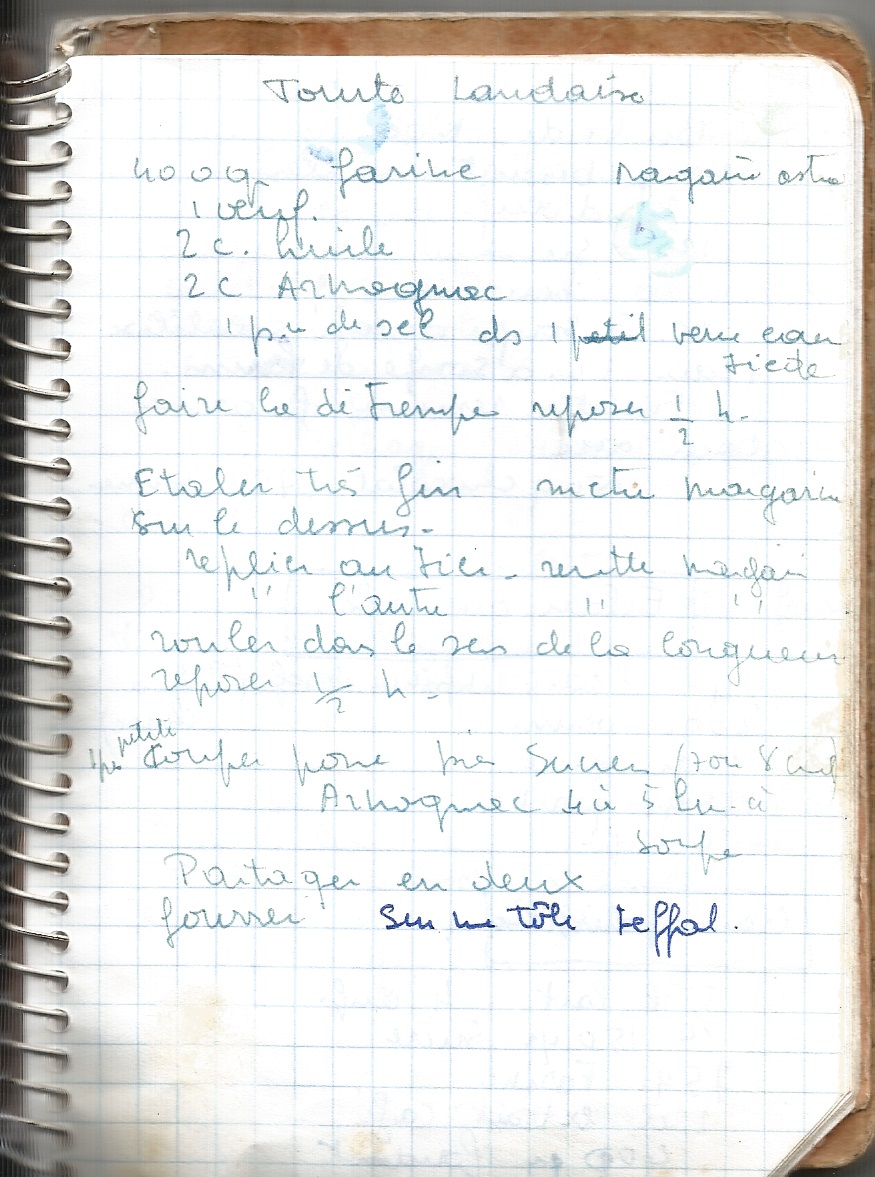 Tourte Landaise
400g farine margarine astra
1 oeuf.
2 c. huile
2 c Armagnac
1 pin de sel ds 1 petit verre eau
tiède
faire la détrempe reposer 1/2 h.
Etaler très fin mettre margarine
sur le dessus.
replier au tier - remettre margarin
" l'autre " "
rouler dans le sens de la longueur
reposer 1/2 h -
petite
Couper pome sucrer (7 ou 8 cuil
Armagnac 4 à 5 cu. à
soupe
Partager en deux
fourrer sur une tôle teffal.